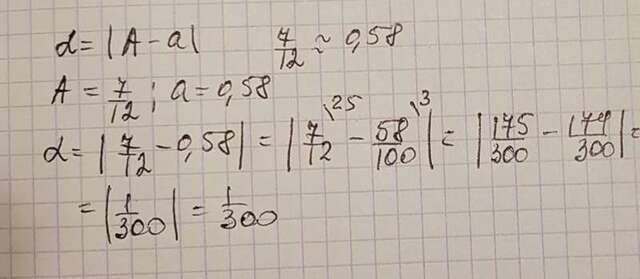 α = |A - a|    7/12 ≈ 0,58
A = 7/12 ; a = 0,58
α = |7/12 - 0,58| = |7/12 \25 - 58/100 \3| = |175/300 - 174/300| =
= |1/300| = 1/300